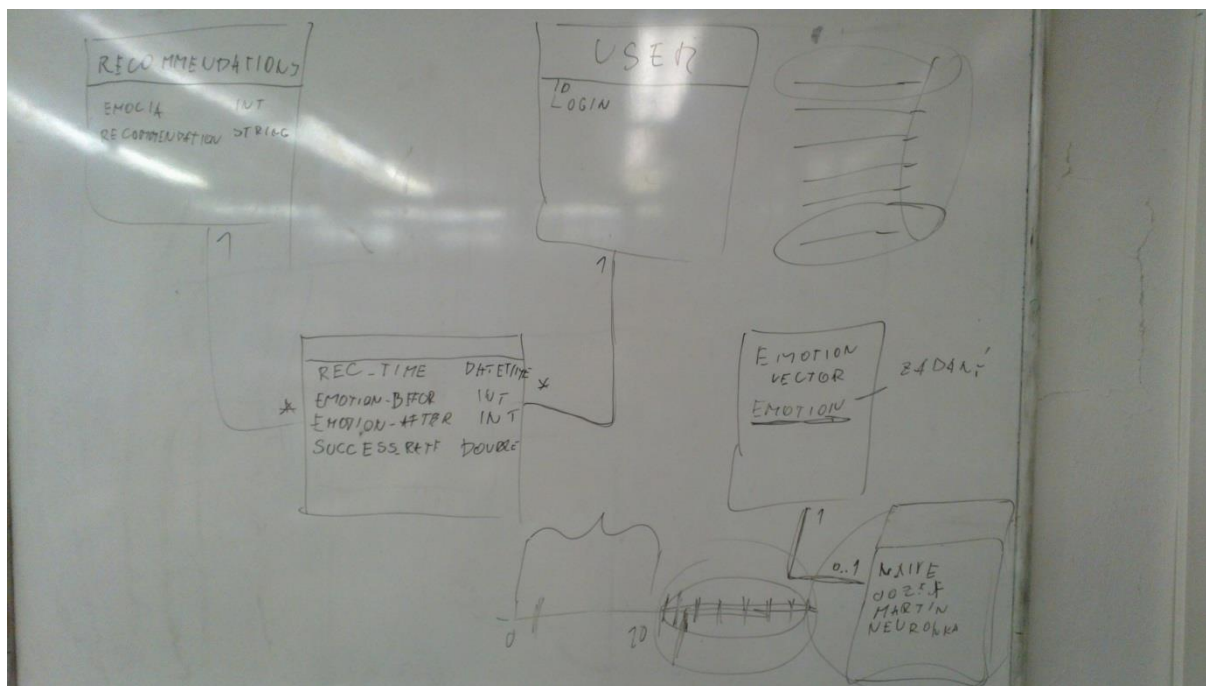 RECOMMENDATIONS
EMOCIA INT
RECOMMENDATION STRING
1
USER
ID
LOGIN
1
REC_TIME DATETIME
EMOTION-BEFOR INT
EMOTION-AFTER INT
SUCCESS_RATE DOUBLE
*
*
EMOTION
VECTOR
EMOTION
ZADANÍ
1
0..1
NAIVE
MARTIN
NEURONKA
0
20